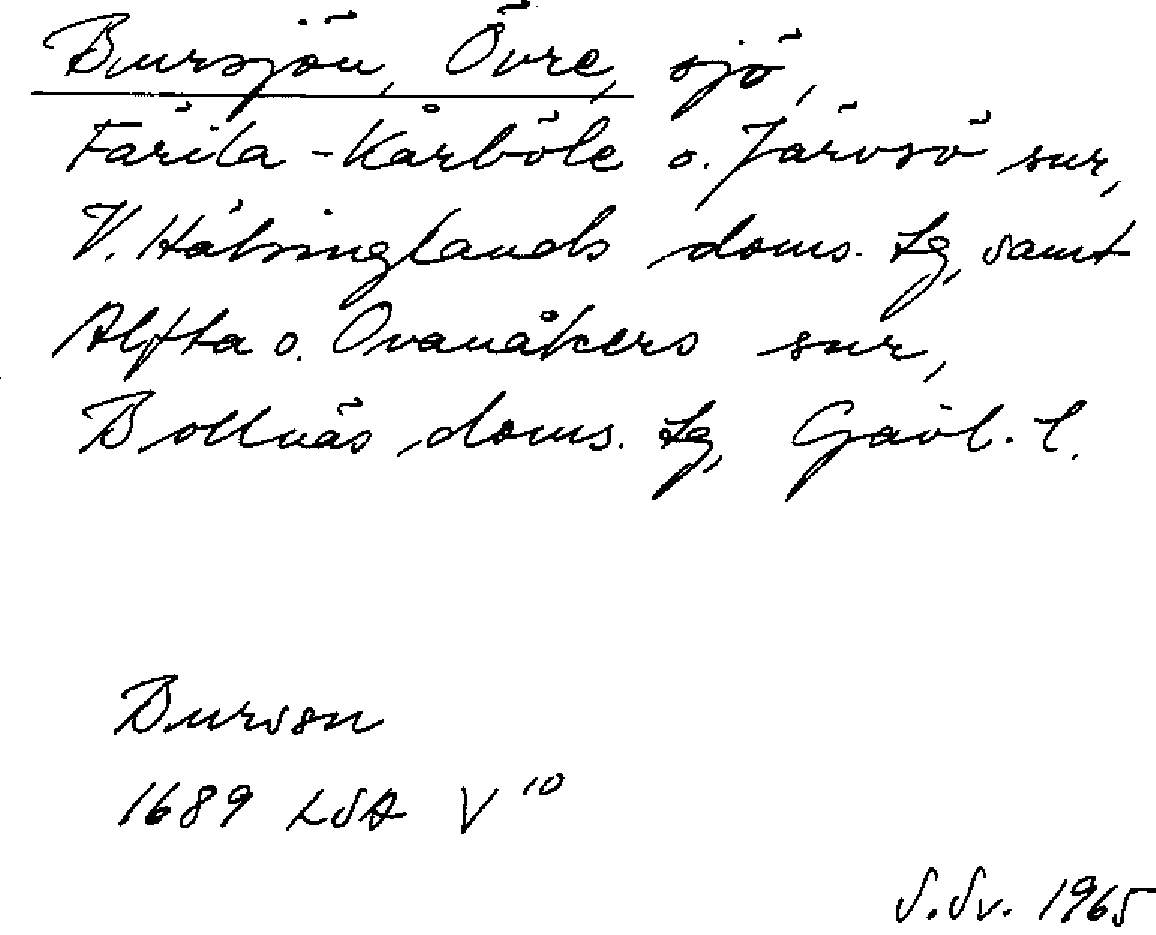 Bursjön, Övre, sjö,
Färila-Kårböle o. Järvsö snr,
V. Hälsinglands doms. tg, samt
Alfta o. Ovanåkers snr,
Bollnäs doms. tg, Gävl. l.
Burson
1689 LSA V 10
S.Sv. 1965